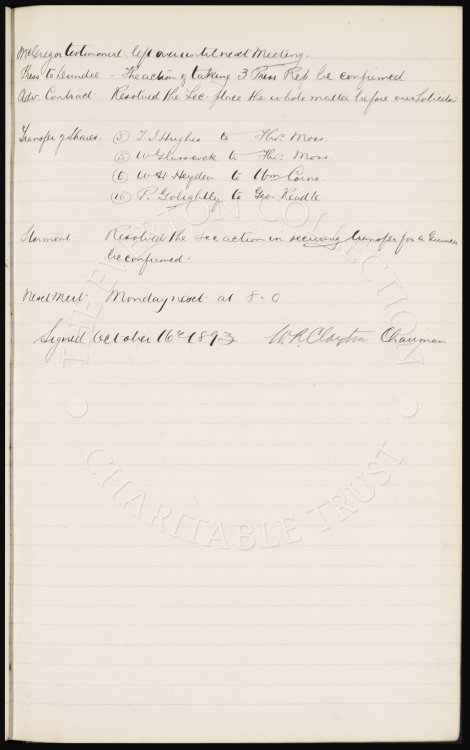 McGregor testimonial left over until next Meeting.
Press to Dundee - The action of taking 3 Press Rep be confirmed
Adv. Contract Resolved the Sec. place the whole matter before our Solicitor
Transfer of Shares (5) T. J Hughes to Thos Moss.
(5) W to Thos Moss.
(6) W H Heyden to Wm Corns.
(10) P. Golightly to Geo
Stormont. Resolved the Sec action in securing transfer for a Guinea
be confirmed.
Next Meet. Monday next at 8.0
Signed October 16th 1893 W. R. Clayton Chairman
THE EVERTON COLLECTION
CHARITABLE TRUST